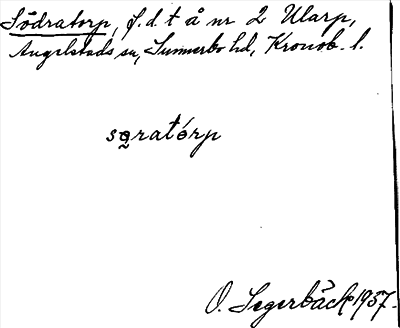 Södratorp, f.d. t å nr 2 Ularp,
Angelstads sn, Sunnerbo hd, Kronob. l.
sɷratórp
O. Segerbäck 1957.